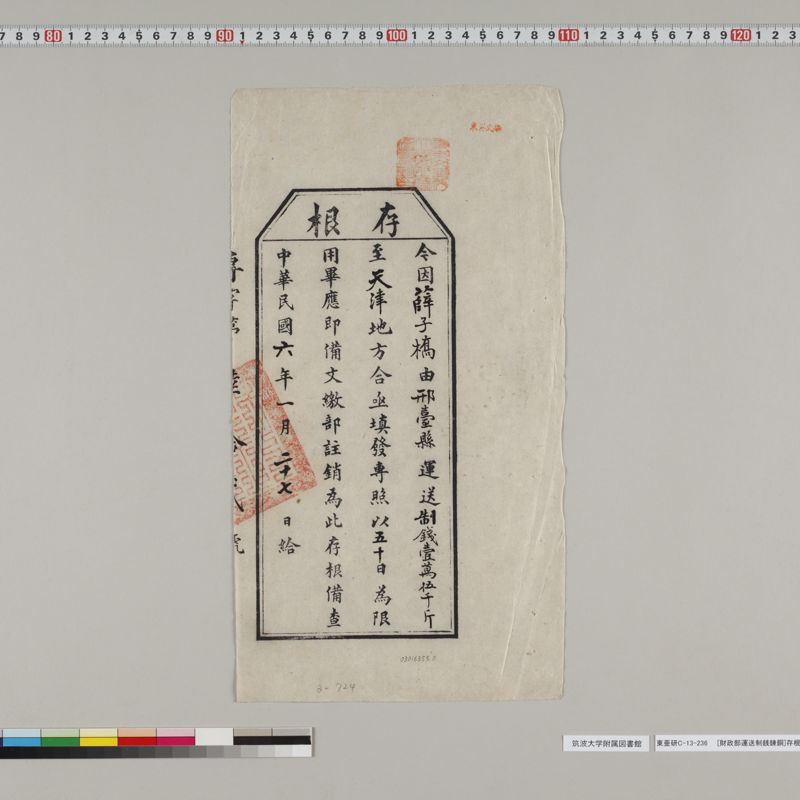 存根
今因薛子橋由邢臺縣運送制錢壹萬伍千斤
至天津地方合亟填發專照以五十日為限
用畢應即備文繳部註銷為此存根備查
中華民國六年一月二十七日給
03016355 0
2-724
筑波大学附属図書館
東亜研C-13-236 [財政部運送制銭錬銅]存根
7 8 9 80 1 2 3 4 5 6 7 8 9 90 1 2 3 4 5 6 7 8 9 100 1 2 3 4 5 6 7 8 9 110 1 2 3 4 5 6 7 8 9 120 1 2 3